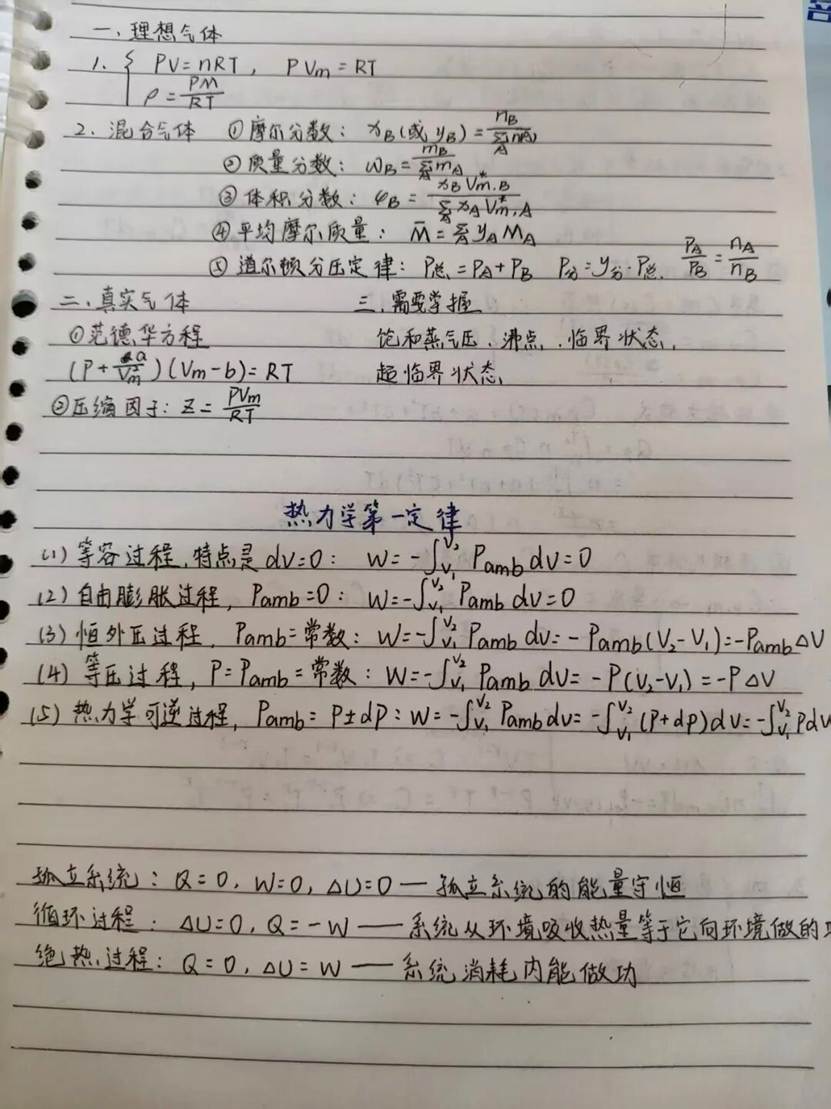 一、理想气体
1. { PV=nRT, PVm=RT
ρ=PM/RT
2. 混合气体 ①摩尔分数: xB(或yB)=nB/∑A nA
②质量分数: ωB=mB/∑A mA
③体积分数: φB=xB V*m,B/∑A xA V*m,A
④平均摩尔质量: M̄=∑A yA MA
⑤道尔顿分压定律: P总=PA+PB P分=y分·P总 PA/PB=nA/nB
二、真实气体 三、需要掌握
①范德华方程 饱和蒸气压、沸点、临界状态,
(P+a/V²m)(Vm-b)=RT 超临界状态
②压缩因子: Z=PVm/RT
热力学第一定律
(1) 等容过程,特点是dV=0: W=-∫V₁^V₂ Pamb dV=0
(2) 自由膨胀过程, Pamb=0: W=-∫V₁^V₂ Pamb dV=0
(3) 恒外压过程, Pamb=常数: W=-∫V₁^V₂ Pamb dV=-Pamb(V₂-V₁)=-Pamb ΔV
(4) 等压过程, P=Pamb=常数: W=-∫V₁^V₂ Pamb dV=-P(V₂-V₁)=-PΔV
(5) 热力学可逆过程, Pamb=P±dP: W=-∫V₁^V₂ Pamb dV=-∫V₁^V₂ (P+dP)dV=-∫V₁^V₂ PdV
孤立系统: Q=0, W=0, ΔU=0 — 孤立系统的能量守恒
循环过程: ΔU=0, Q=-W — 系统从环境吸收热量等于它向环境做的
绝热过程: Q=0, ΔU=W — 系统消耗内能做功